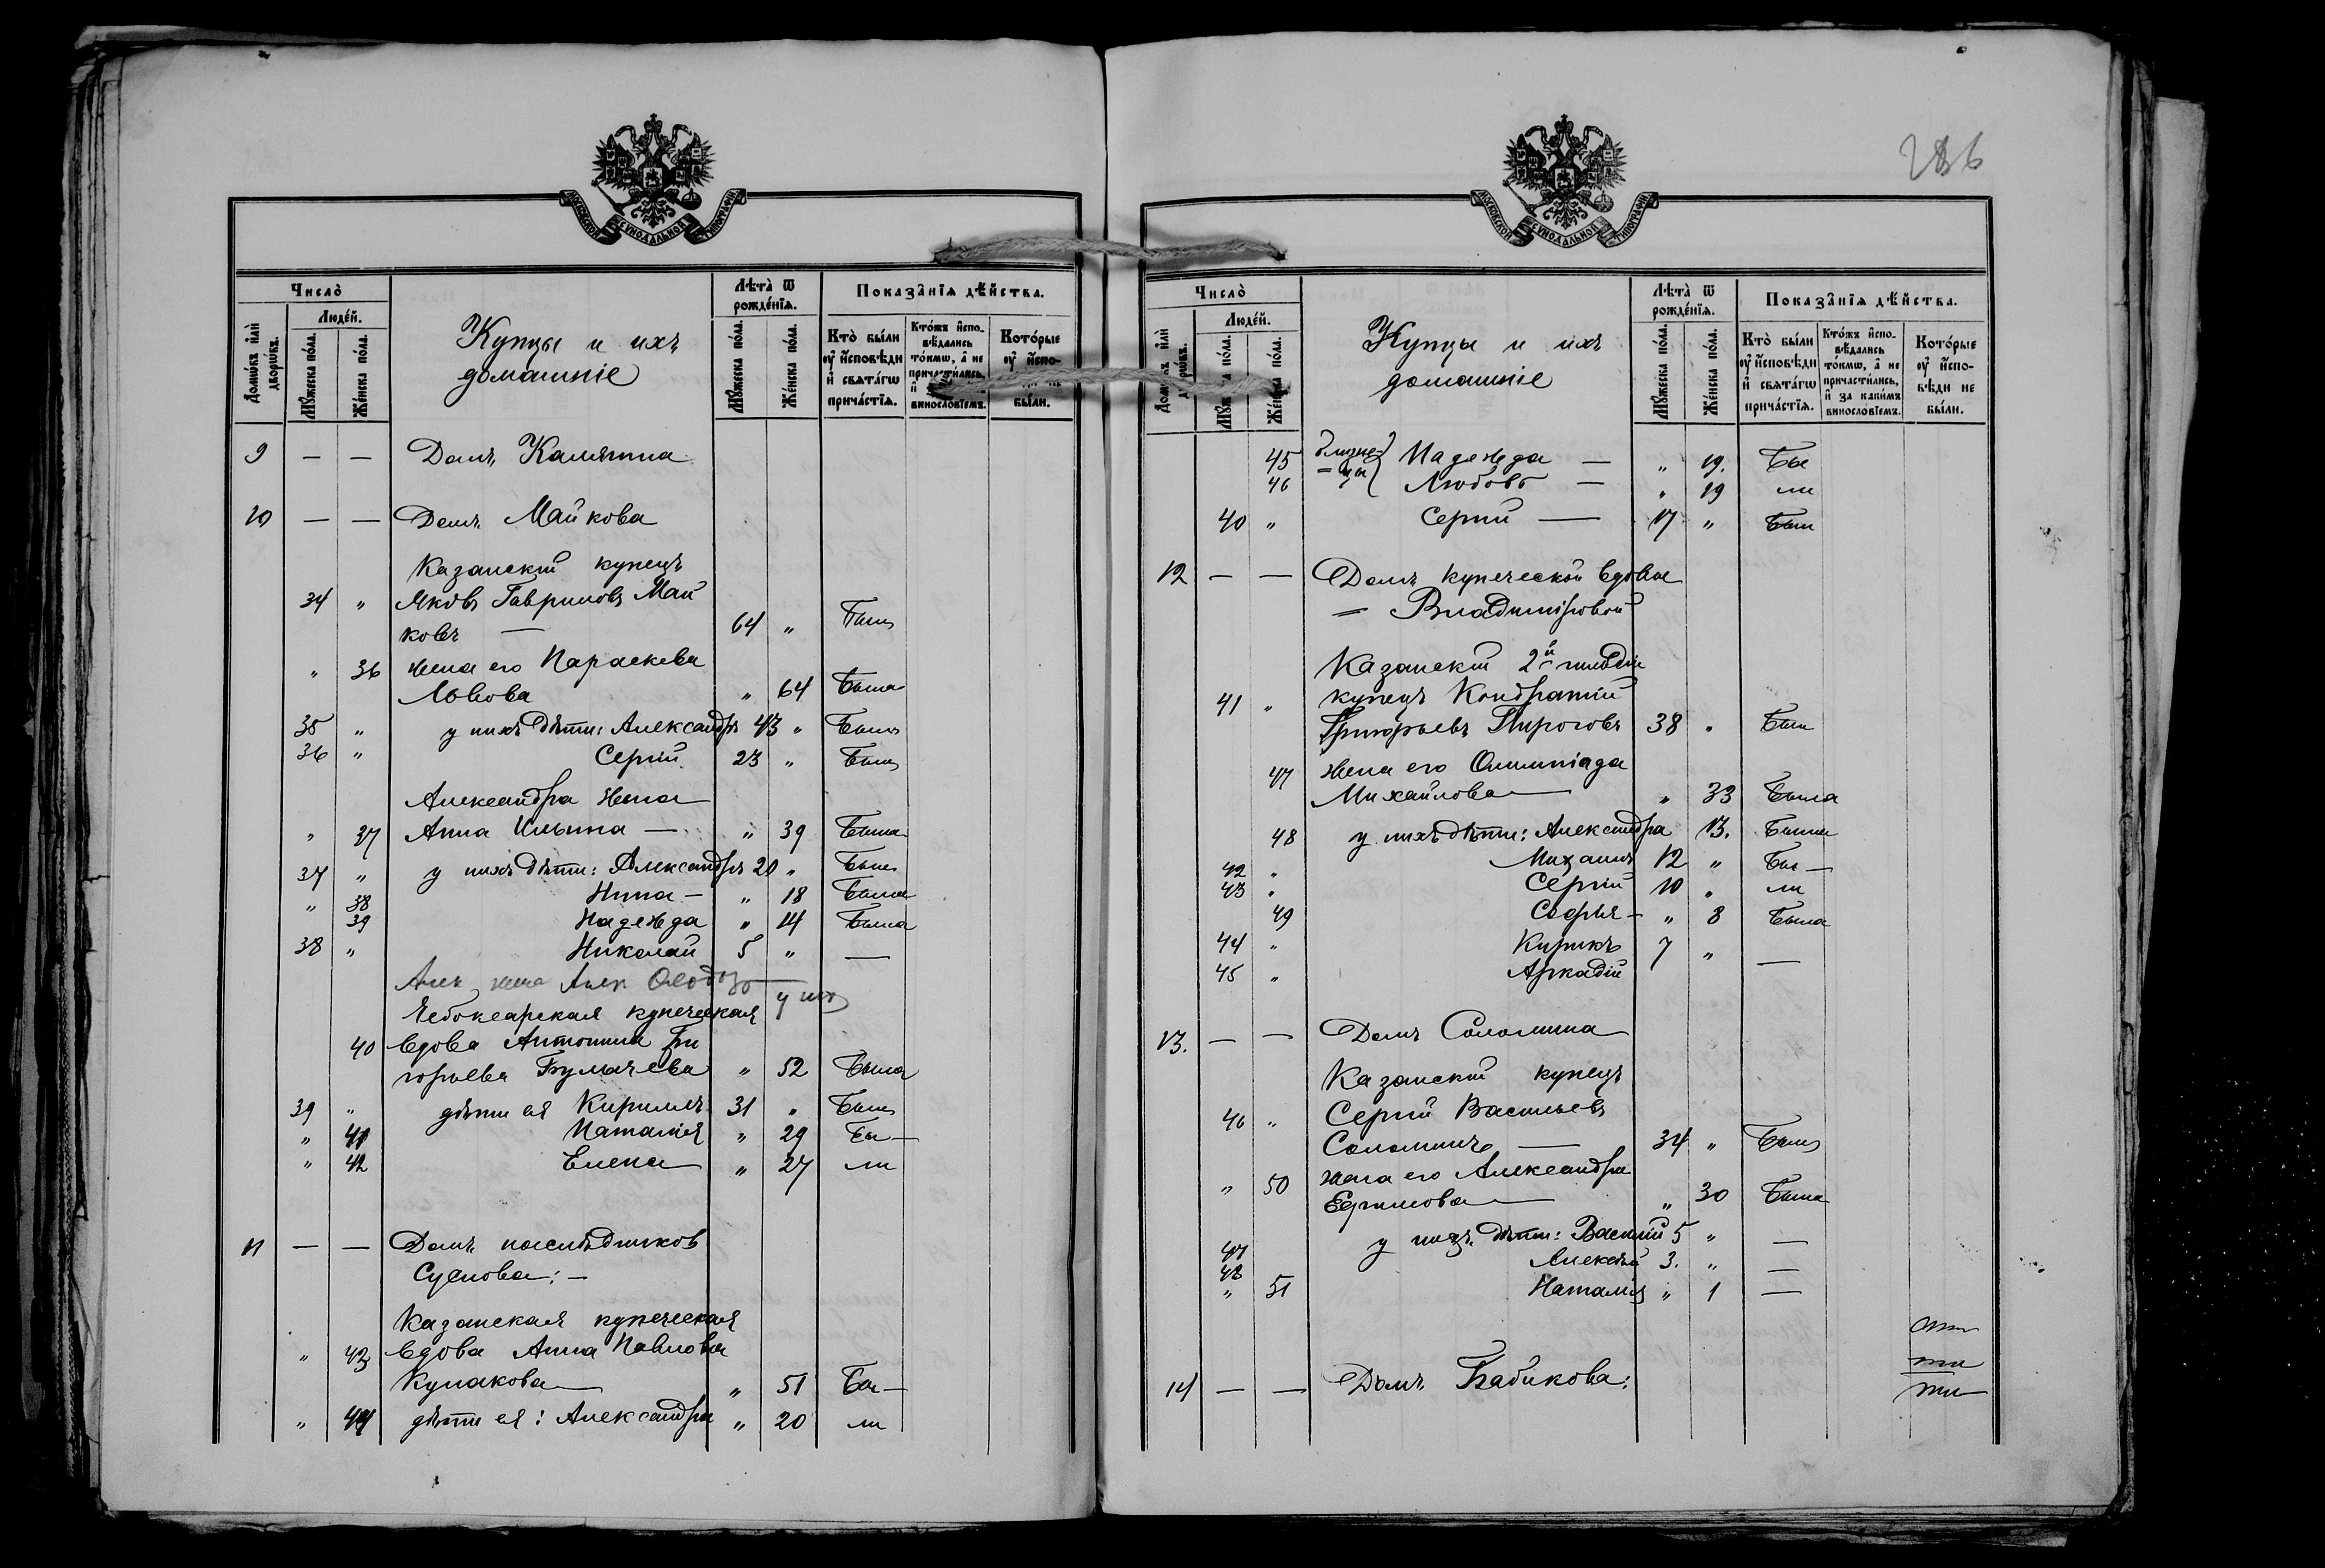 МОСКОВСКОЙ СѴНОДАЛЬНОЙ ТИПОГРАФІИ
Число̀
Людéй.
Домѡ́въ и҆лѝ дворѡ́въ.
Мꙋ́жеска по́ла.
Же́нска по́ла.
Купцы и ихъ
домашніе
Лѣта̀ ѿ рожде́нїѧ.
Мꙋ́жеска по́ла.
Же́нска по́ла.
Показа̂нїѧ дѣ́йства.
Кто̀ бы́ли ѹ҆ и҆сповѣди и҆ свѧта́гѡ прича́стїѧ.
Кто́жъ и҆сповѣдались то́кмѡ, а҆ не причасти́лись, и҆ винословїемъ.
Кото́рые ѹ҆ и҆спо- бы́ли.
9 — — Домъ Калягина
10 — — Домъ Майкова
Казанскій купецъ
34 " Яковъ Гавриловъ Май
ковъ — 64 " Былъ
" 36 жена его Параскева
Львова " 64 Была
35 " у нихъ дѣти: Александръ 43 " Былъ
36 " Сергій 23 " Былъ
Александра жена
" 37 Анна Ильина — " 39 Была
37 " у нихъ дѣти: Александръ 20 " Былъ
" 38 Нина — " 18 Была
39 Надежда " 14 Была
38 " Николай 5 " —
Чебоксарская купеческая
40 вдова Антонина Гри
горьева Бумачева " 52 Была
39 " дѣти ея Кириллъ 31 " Былъ
" 41 Наталія " 29 Бы—
" 42 Елена " 27 ли
11 — — Домъ наслѣдниковъ
Суслова: —
Казанская купеческая
" 43 вдова Анна Павлова
Кулакова — " 51 Бы—
" 44 дѣти ея: Александра " 20 ли
286
МОСКОВСКОЙ СѴНОДАЛЬНОЙ ТИПОГРАФІИ
Число̀
Людéй.
Мꙋ́жеска по́ла.
Же́нска по́ла.
Купцы и ихъ
домашніе
Лѣта̀ ѿ рожде́нїѧ.
Мꙋ́жеска по́ла.
Же́нска по́ла.
Показа̂нїѧ дѣ́йства.
Кто̀ бы́ли ѹ҆ и҆сповѣди и҆ свѧта́гѡ прича́стїѧ.
Кто́жъ и҆сповѣдались то́кмѡ, а҆ не причасти́лись, и҆ за каки́мъ винословїемъ.
Кото́рые ѹ҆ и҆спо- вѣди не бы́ли.
45 близне- Надежда — " 19. Бы
46 =цы Любовь — " 19 ли
40 " Сергій — 17 " Былъ
12 — — Домъ купеческой вдовы
= Владиміровой
Казанскій 2й гильдіи
41 " купецъ Кондратій
Григорьевъ Пироговъ 38 " Былъ
47 жена его Олимпіада
Михайлова — " 33 Была
48 у нихъ дѣти: Александра 13. Была
42 " Михаилъ 12 " Бы—
43 " Сергій 10 " ли
49 Софья — " 8 Была
44 " Кирикъ 7 " —
45 " Аркадій
13. — — Домъ Соломина
Казанскій купецъ
46 " Сергій Васильевъ
Соломинъ — 34 " Былъ
" 50 жена его Александра
Ефимова — " 30 Была
47 у нихъ дѣти: Василій 5 " —
48 Алексѣй 3. " —
" 51 Наталія " 1 —
14 — — Домъ Бабикова: